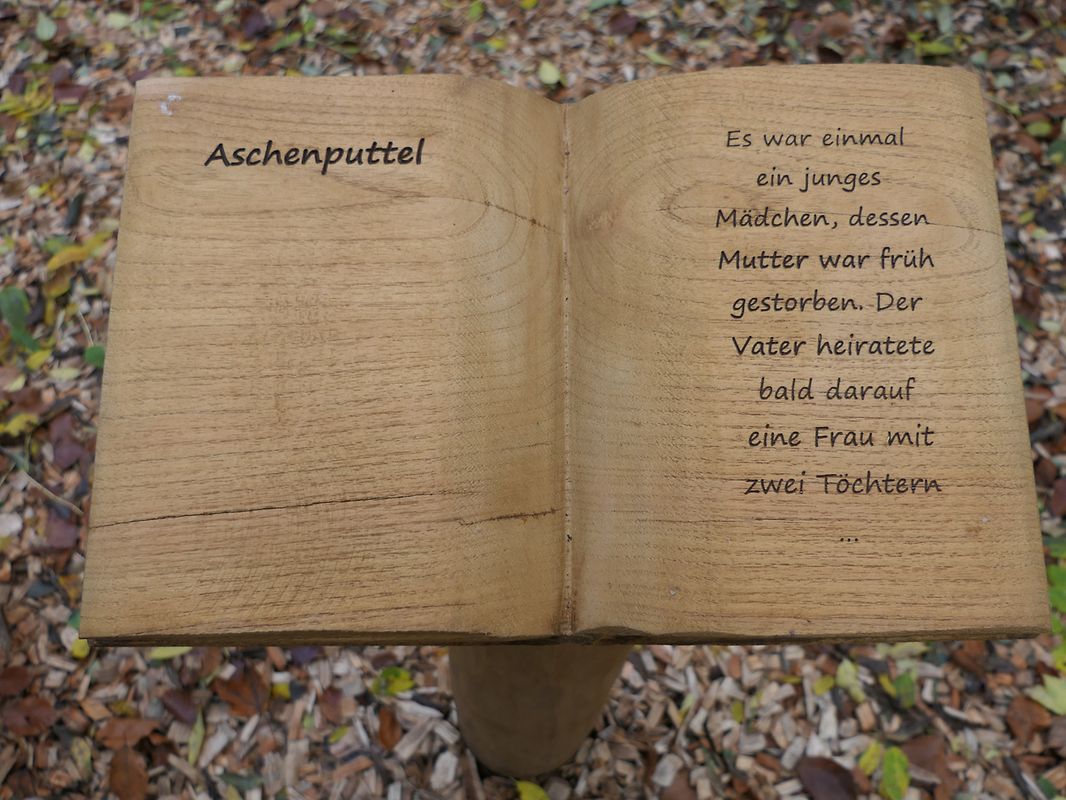 Aschenputtel
Es war einmal
ein junges
Mädchen, dessen
Mutter war früh
gestorben. Der
Vater heiratete
bald darauf
eine Frau mit
zwei Töchtern
...